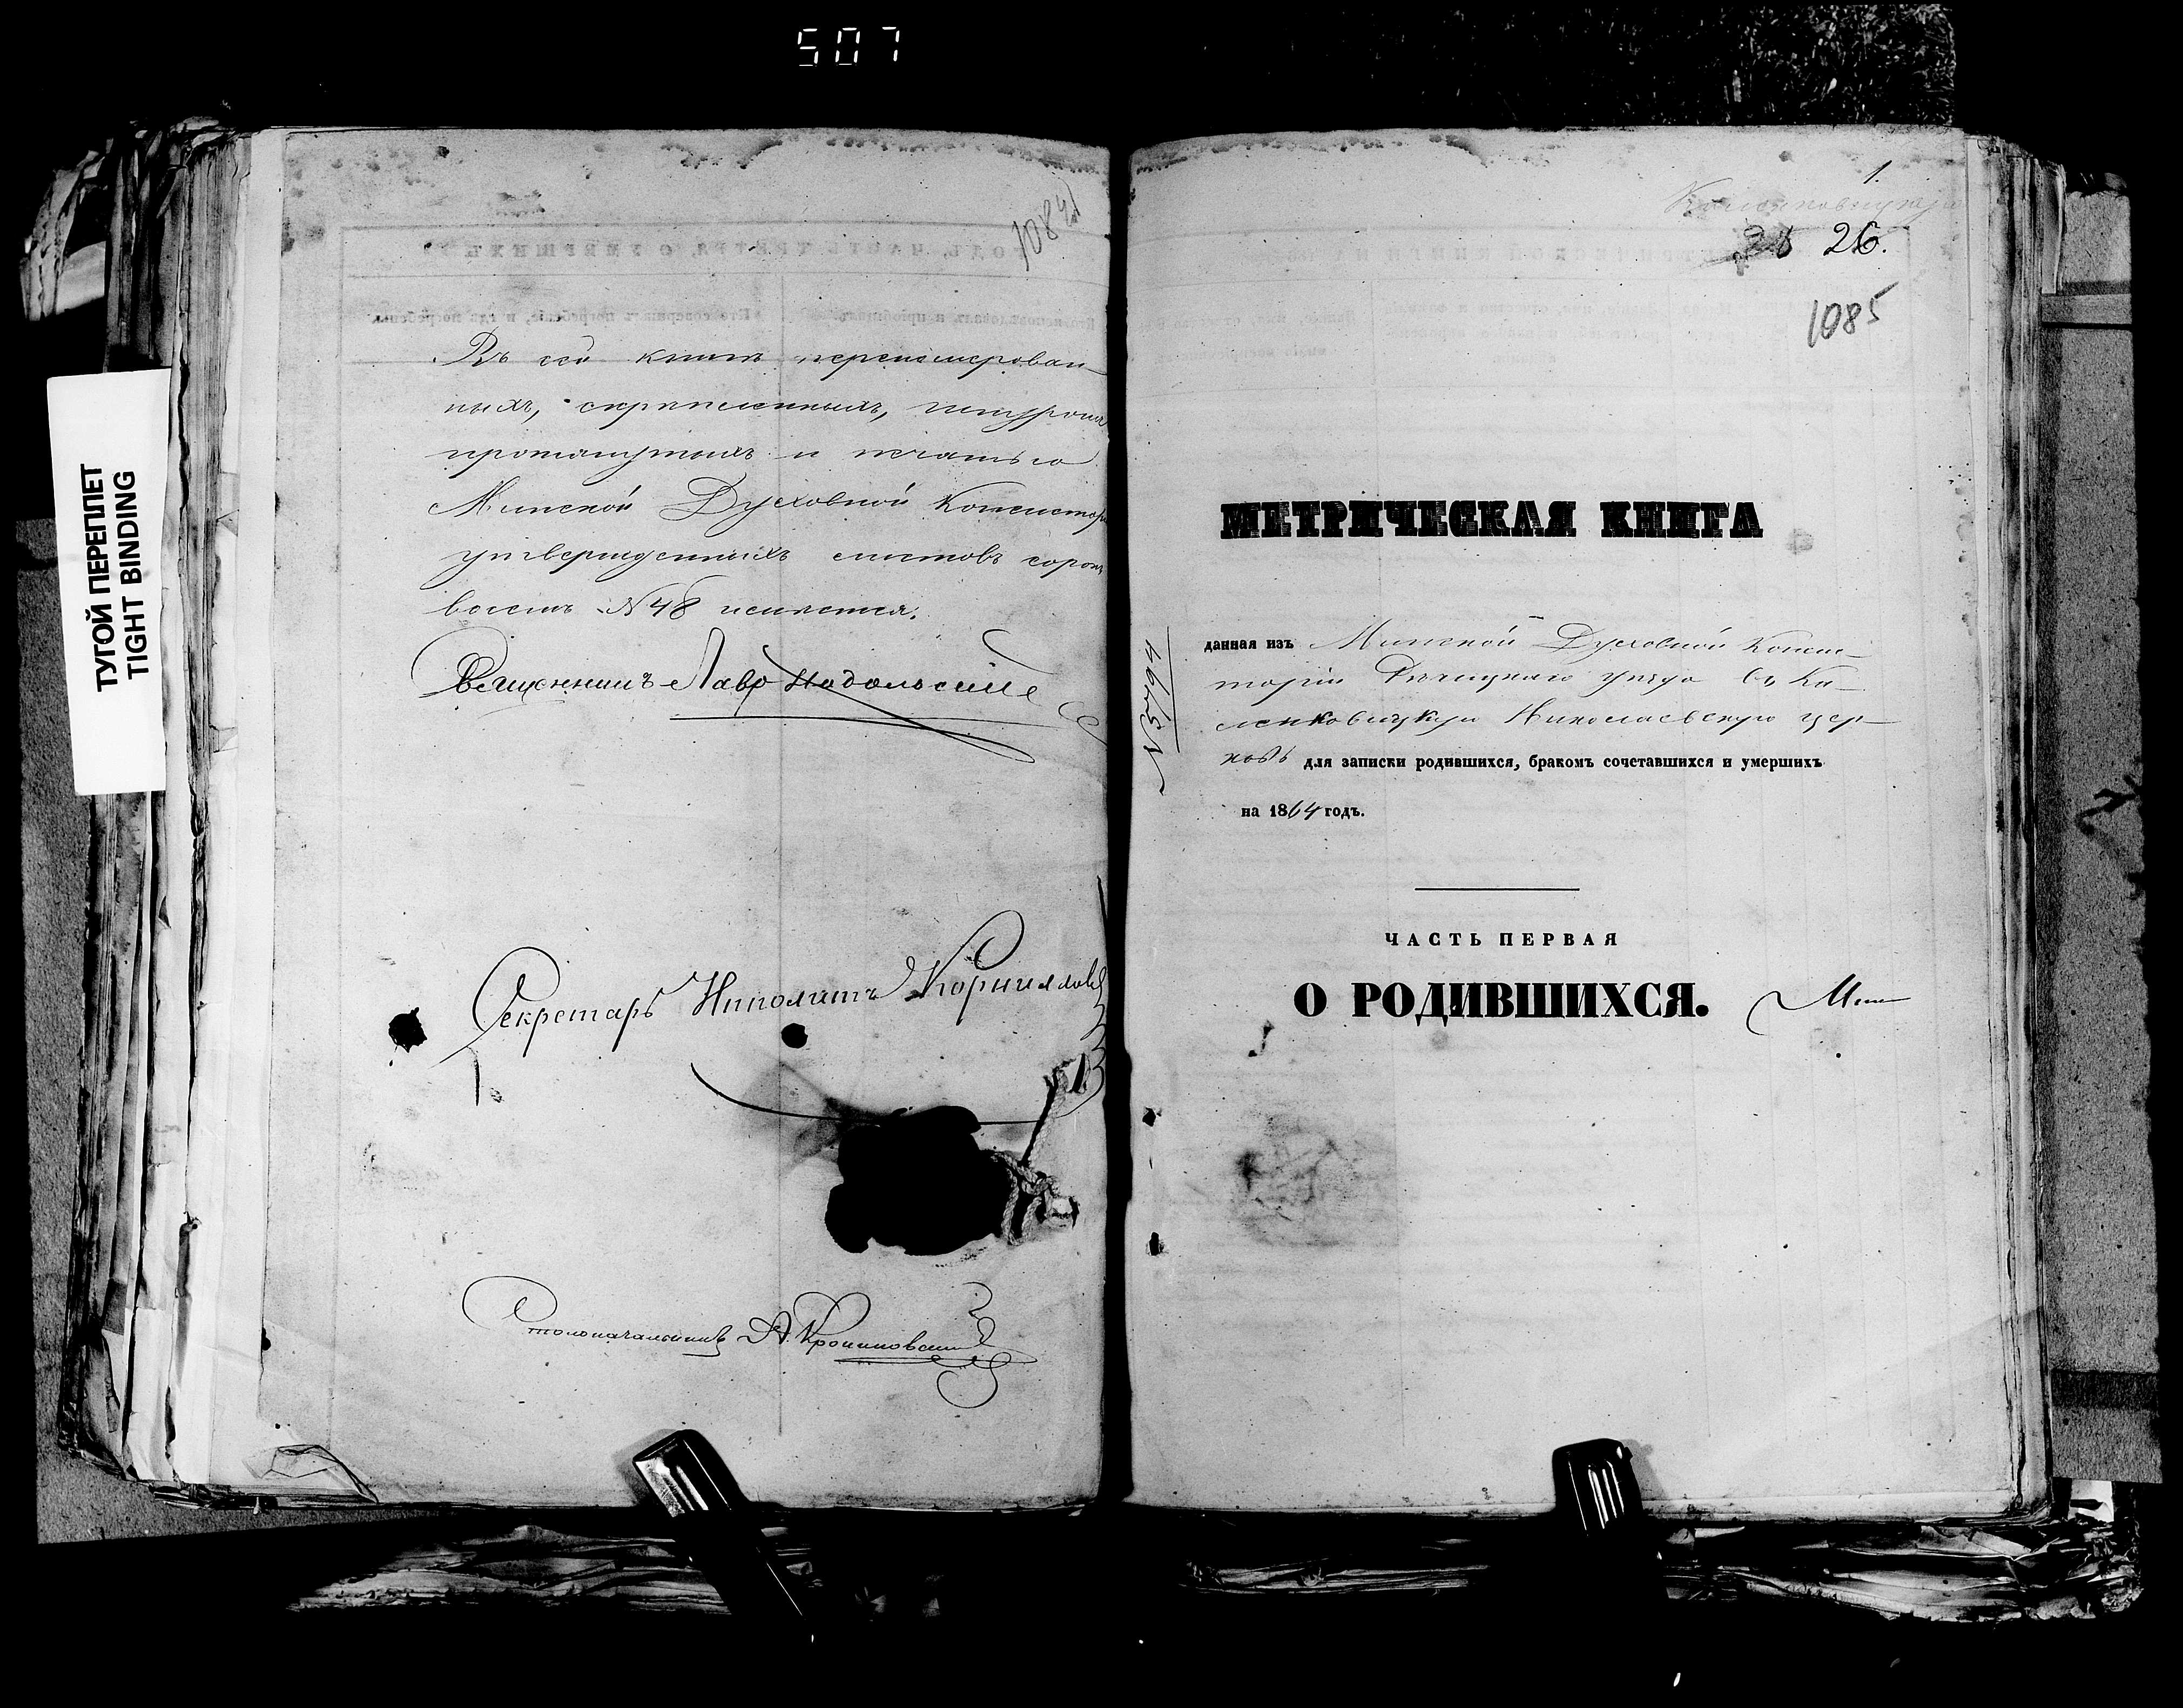 507
ТУГОЙ ПЕРЕПЛЕТ
TIGHT BINDING
1084
Въ сей книгѣ перенумерован-
ныхъ, скрѣпленныхъ, шнуромъ
протянутыхъ и печатью
Минской Духовной Консистор
утвержденныхъ листовъ сорокъ
восемь №48 имѣется.
Священникъ Лавр
Секретарь Ипполитъ Корнилов
Столоначальникъ А.
1.
26.
1085
МЕТРИЧЕСКАЯ КНИГА
№ 5094
данная изъ Минской Духовной Консис-
торіи Рѣчицкаго уѣзда въ Ка-
ленковицкую Николаевскую цер-
ковь для записки родившихся, бракомъ сочетавшихся и умершихъ
на 1864 годъ.
ЧАСТЬ ПЕРВАЯ
О РОДИВШИХСЯ.